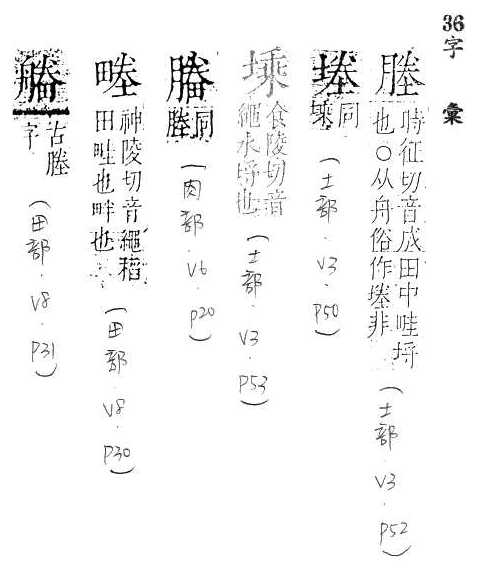 36字彙
塍
時征切音成田中畦埒
也○从舟俗作堘非
(土部.V3.P52)
堘
同
塖
(土部.V3.P50)
塖
食陵切音
繩水埒也
(土部.V3.P53)
同
塍
(肉部.V6.P20)
神陵切音繩稻
田畦也畔也
(田部.V8.P30)
古塍
字
(田部.V8.P31)